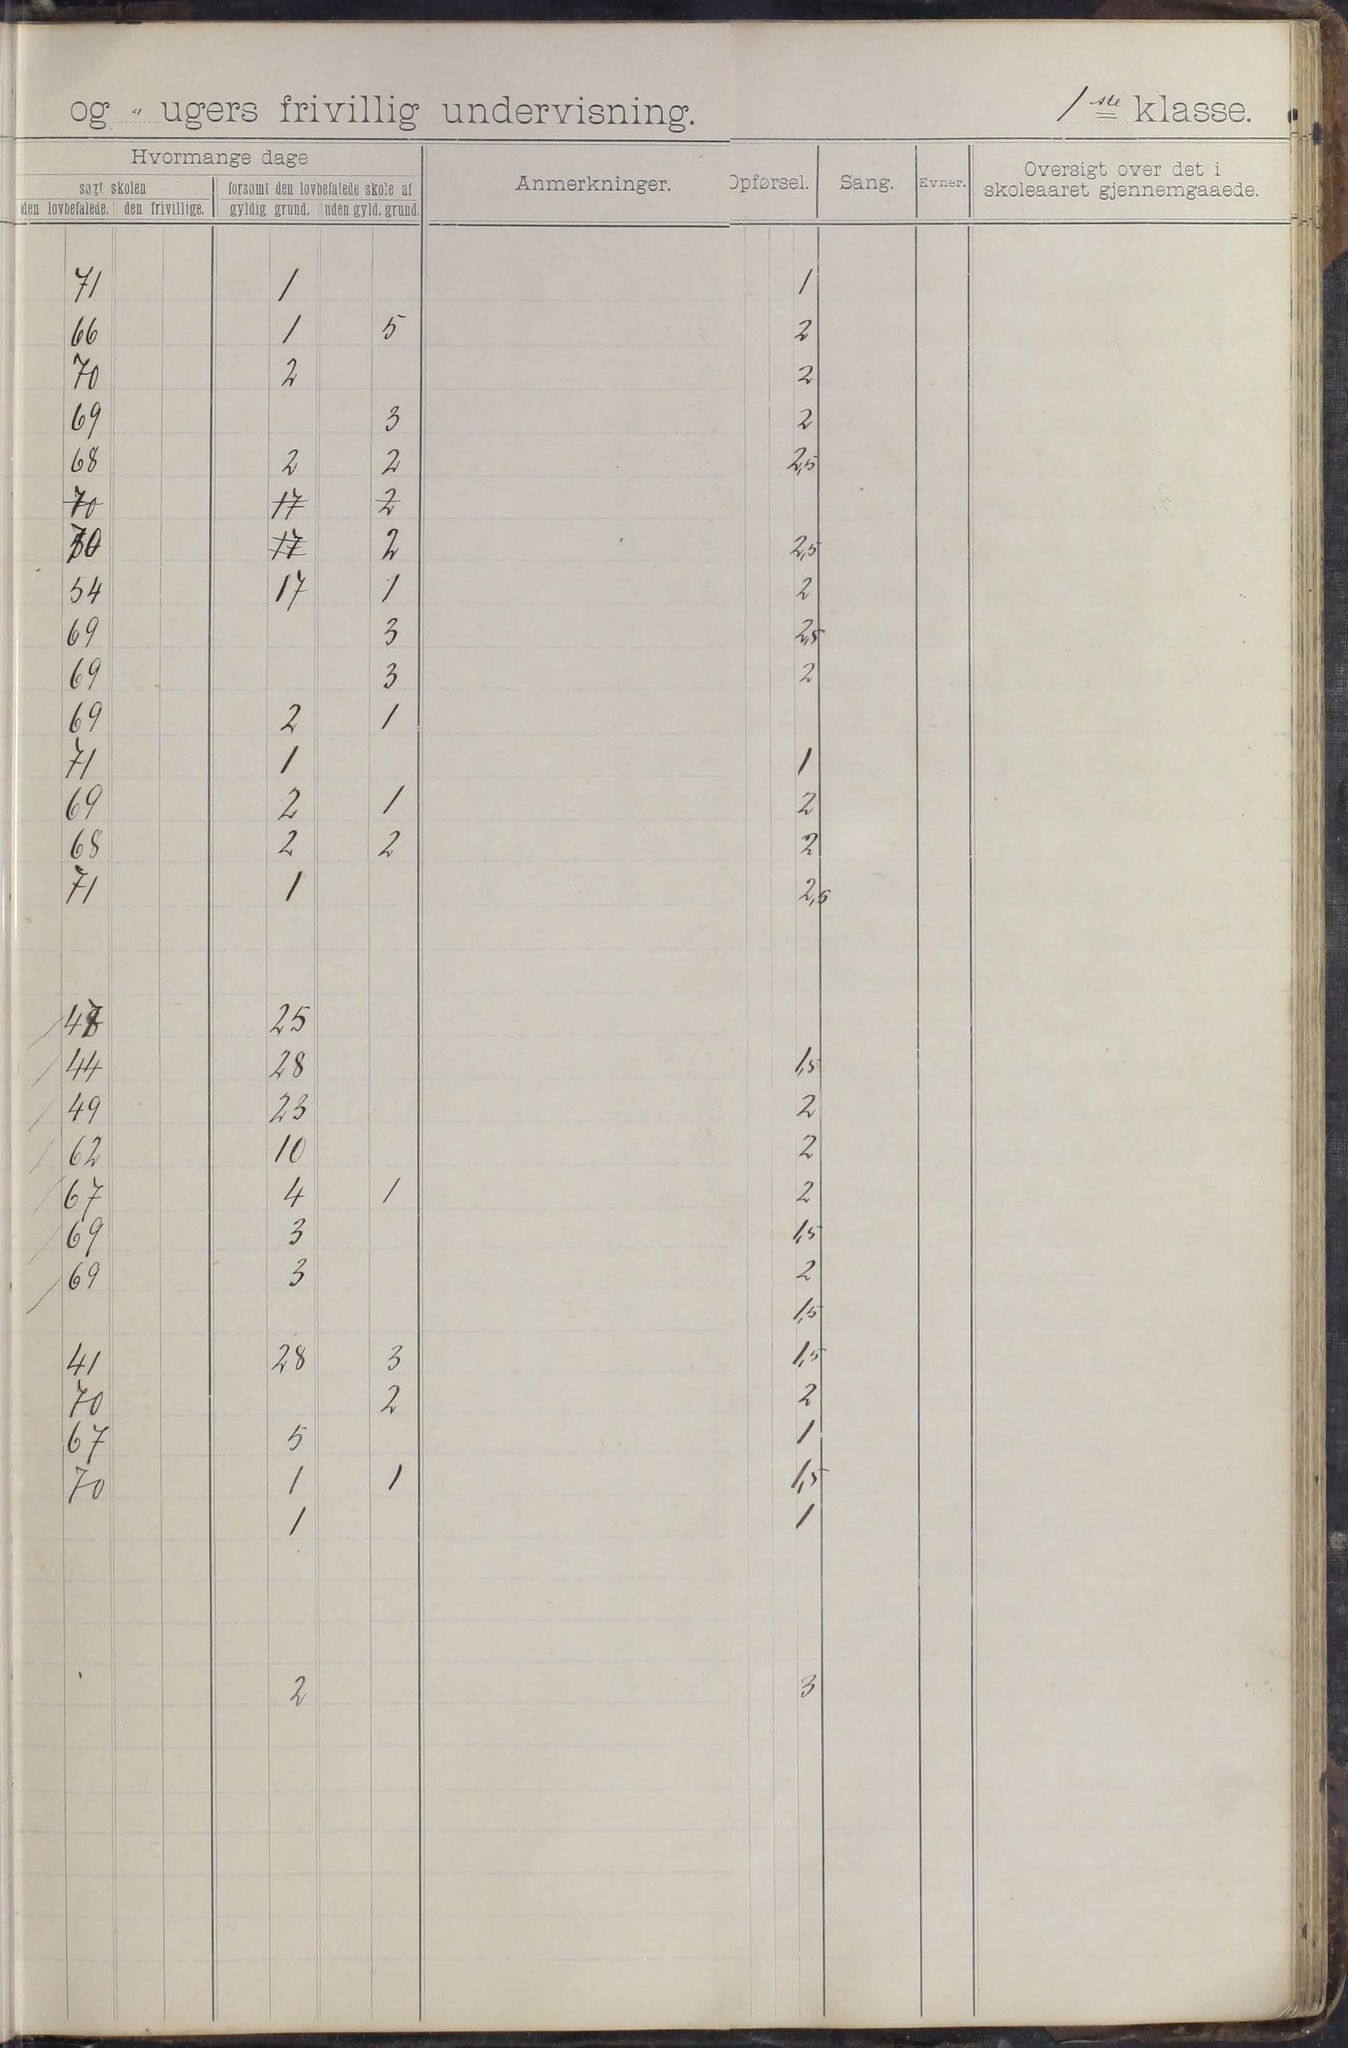 og „ ugers frivillig undervisning. 1ste klasse.
Hvormange dage Anmerkninger. Opførsel. Sang. Evner. Oversigt over det i skoleaaret gjennemgaaede.
søgt skolen forsømt den lovbefalede skole af
den lovbefalede. den frivillige. gyldig grund. uden gyld. grund.
71 1 1
66 1 5 2
70 2 2
69 3 2
68 2 2 2,5
70 17 2
70 17 2 2,5
54 17 1 2
69 3 2,5
69 3 2
69 2 1
71 1 1
69 2 1 2
68 2 2 2
71 1 2,5
47 25
44 28 1,5
49 23 2
62 10 2
67 4 1 2
69 3 1,5
69 3 2
1,5
41 28 3 1,5
70 2 2
67 5 1
70 1 1 1,5
1 1
2 3